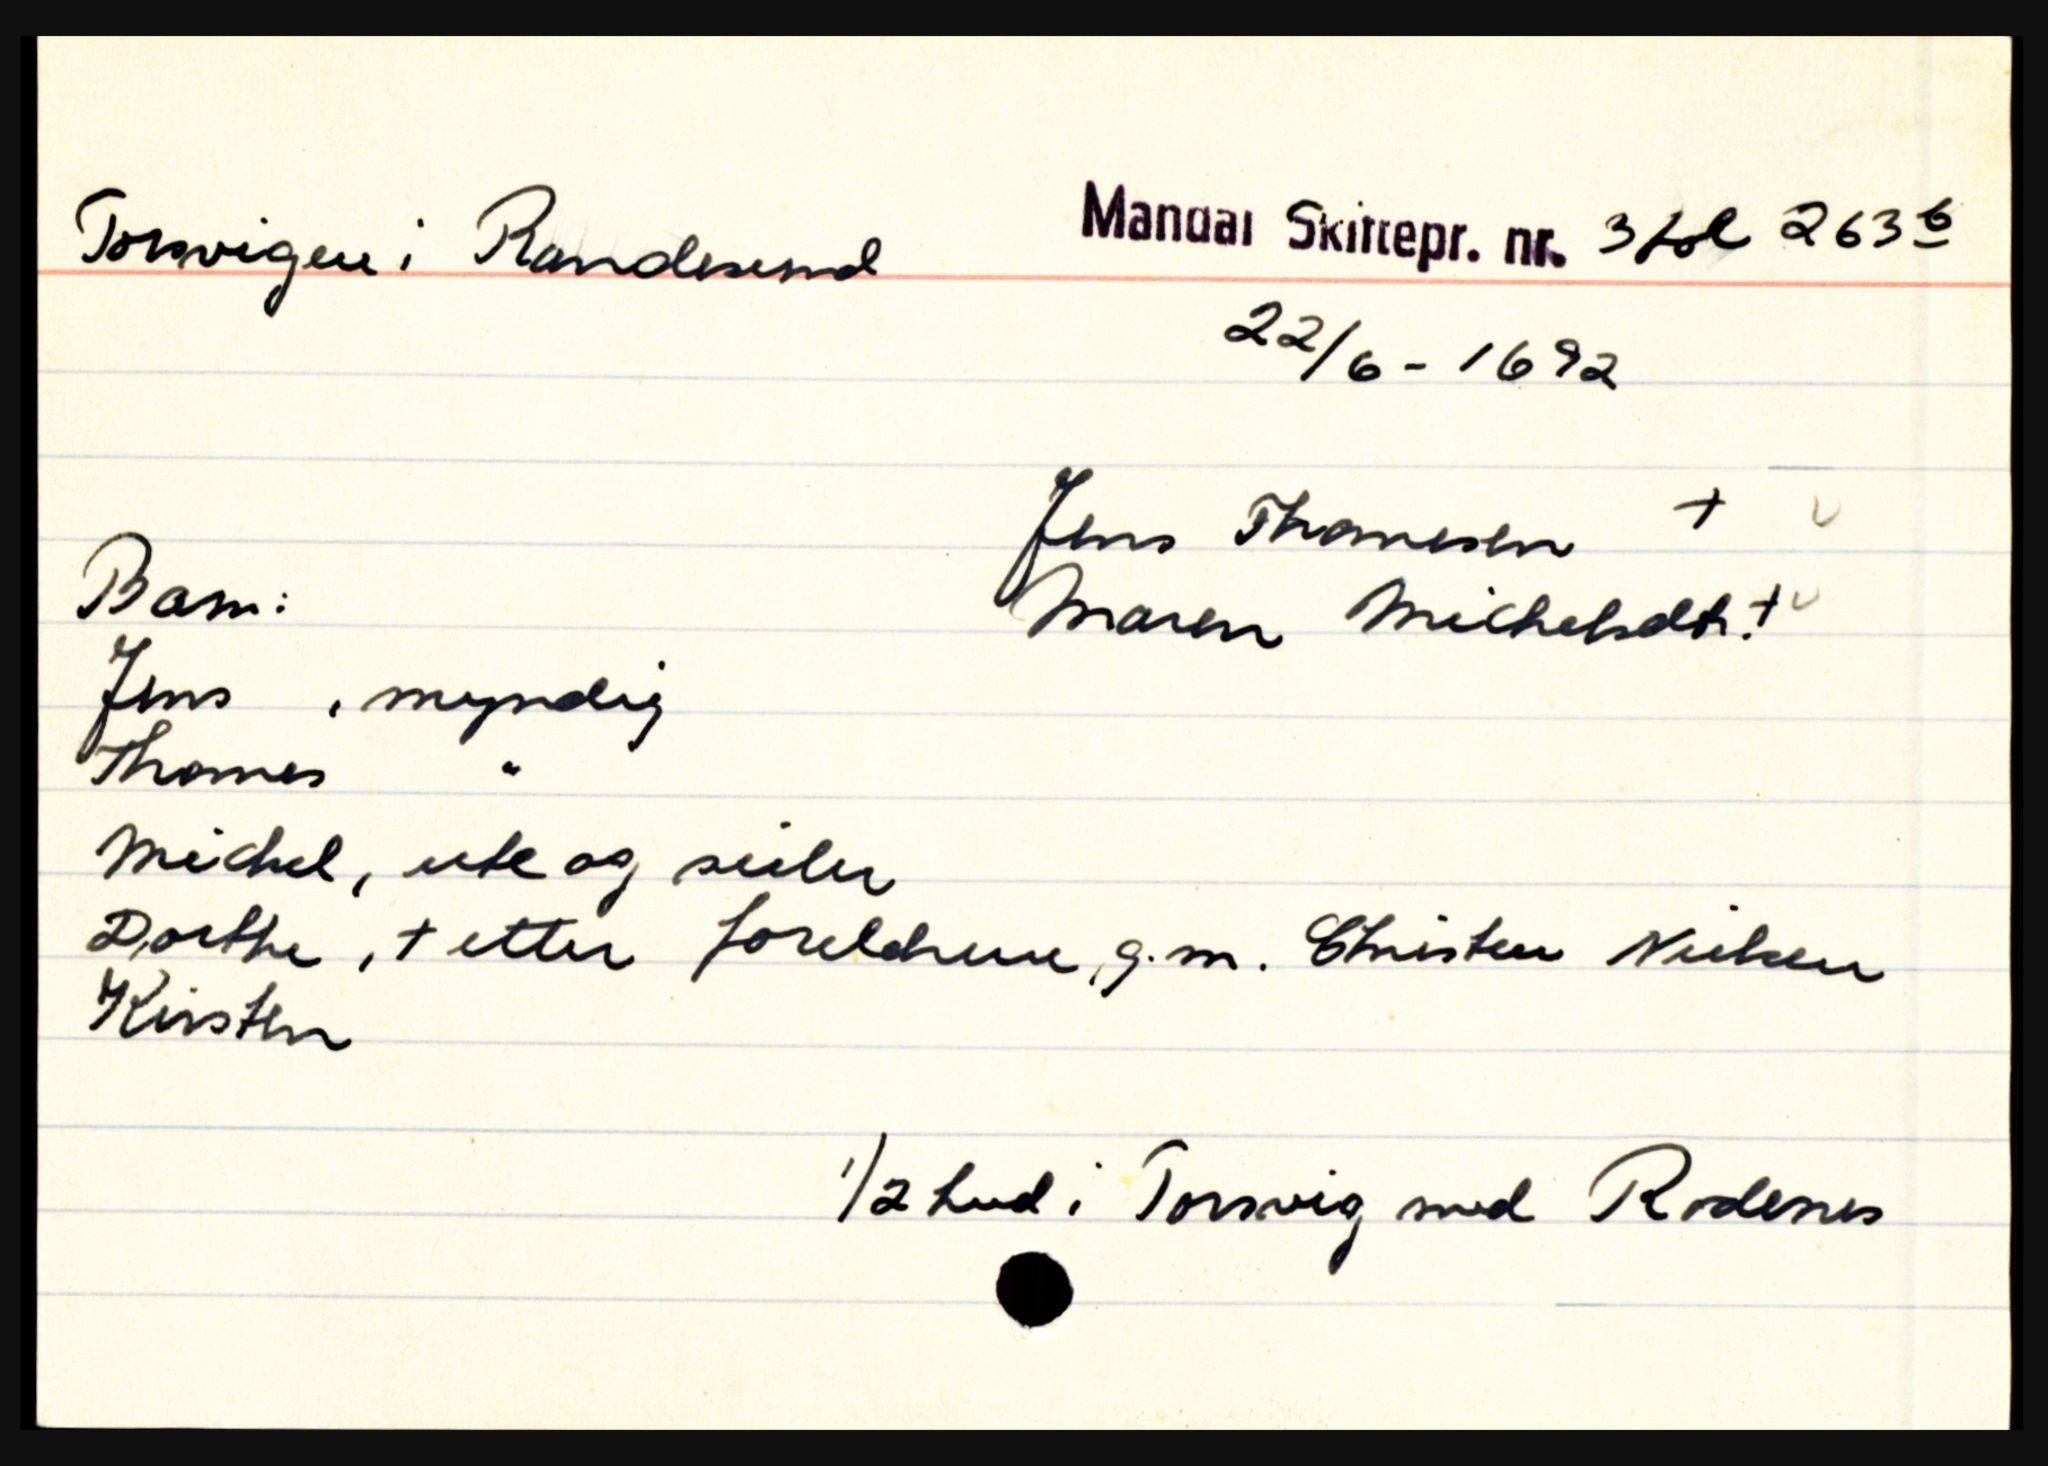 Torsvigen i Randesund
Mandal Skiftepr. nr. 3 fol 263 b
22/6 - 1692
Jens Thomesen +
Maren Michelsdtr. +
Barn:
Jens , myndig
Thomes "
Michel, ute og seiler
Dorthe, + etter foreldrene, g.m. Christen Nielsen
Kirsten
1/2 hud i Torsvig med Rodenes